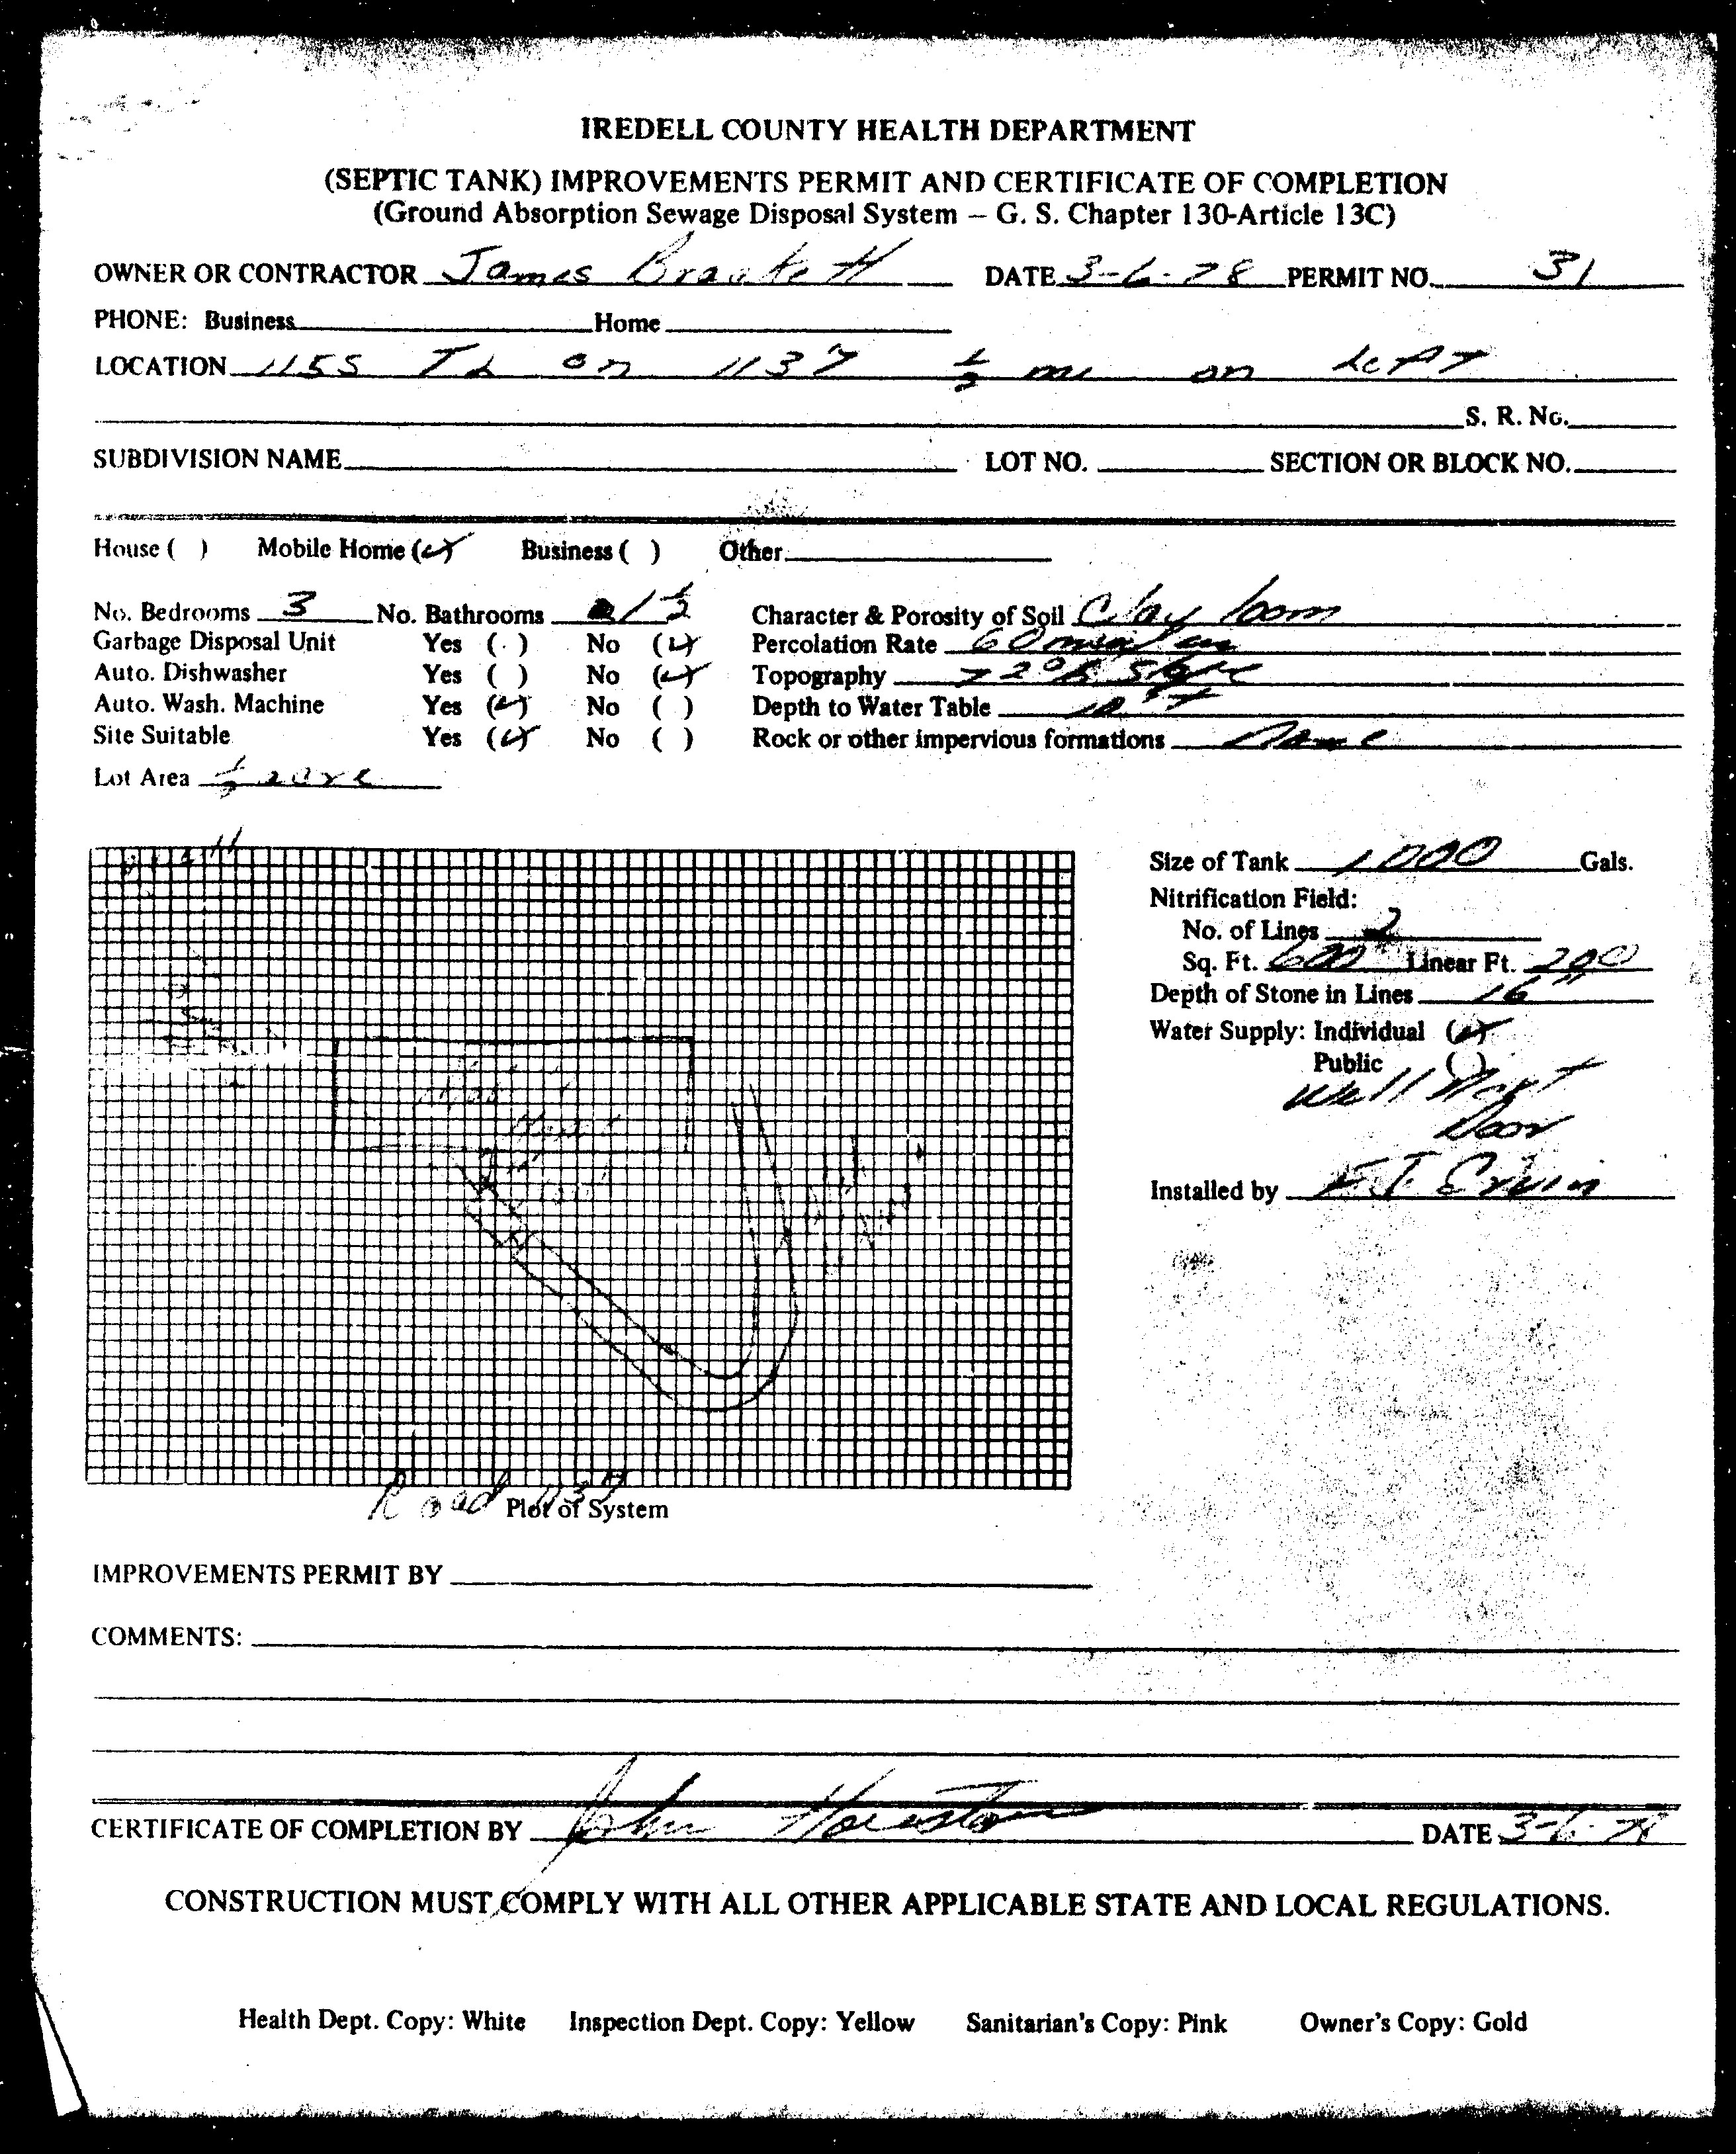 IREDELL COUNTY HEALTH DEPARTMENT
(SEPTIC TANK) IMPROVEMENTS PERMIT AND CERTIFICATE OF COMPLETION
(Ground Absorption Sewage Disposal System – G. S. Chapter 130-Article 13C)
OWNER OR CONTRACTOR James DATE 3-6-78 PERMIT NO. 31
PHONE: Business Home
LOCATION 1155 TL on 1137 ½ mi on Left
S. R. No.
SUBDIVISION NAME LOT NO. SECTION OR BLOCK NO.
House ( ) Mobile Home (✓) Business ( ) Other
No. Bedrooms 3 No. Bathrooms 1½ Character & Porosity of Soil Clay loam
Garbage Disposal Unit Yes ( ) No (✓) Percolation Rate 60 min/in
Auto. Dishwasher Yes ( ) No (✓) Topography 2% Slope
Auto. Wash. Machine Yes (✓) No ( ) Depth to Water Table 10 FT
Site Suitable Yes (✓) No ( ) Rock or other impervious formations None
Lot Area ½ acre
Size of Tank 1000 Gals.
Nitrification Field:
No. of Lines 2
Sq. Ft. 600 Linear Ft. 200
Depth of Stone in Lines 16"
Water Supply: Individual (✓)
Public ( )
Well Next
Door
Installed by F.T. Ervin
Road 1137
Plot of System
IMPROVEMENTS PERMIT BY
COMMENTS:
CERTIFICATE OF COMPLETION BY John Houston DATE 3-6-78
CONSTRUCTION MUST COMPLY WITH ALL OTHER APPLICABLE STATE AND LOCAL REGULATIONS.
Health Dept. Copy: White Inspection Dept. Copy: Yellow Sanitarian's Copy: Pink Owner's Copy: Gold